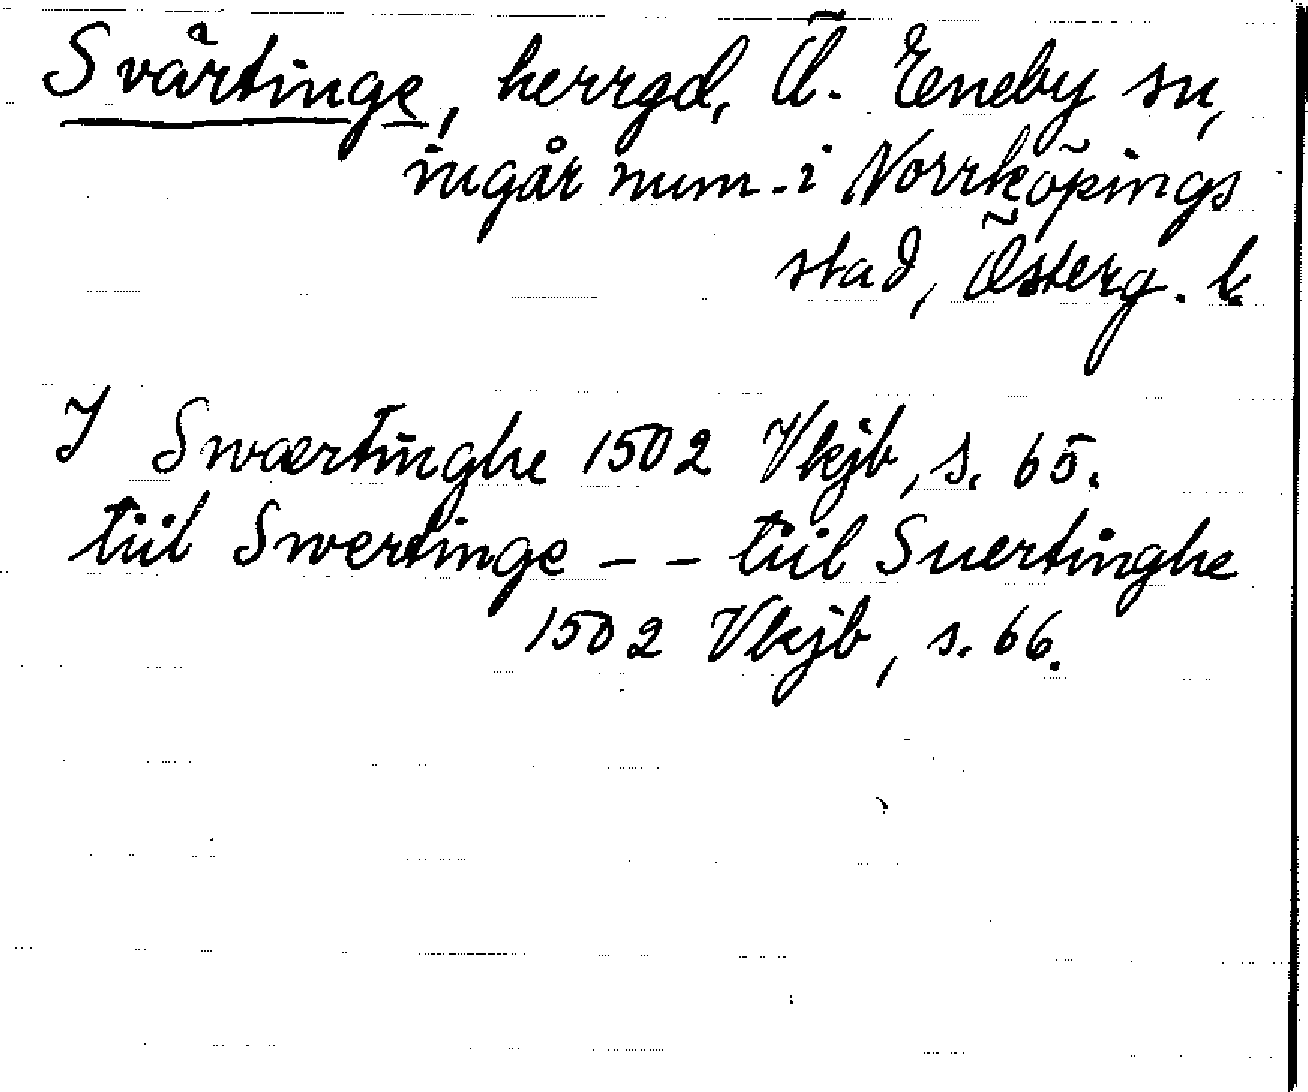 Svärtinge, herrgd, Ö. Eneby sn,
ingår num. i Norrköpings
stad, Österg. l.
I Swærtinghe 1502 Vkjb, s. 65.
tiil Swertinge - - tiil Suertinghe
1502 Vkjb, s. 66.